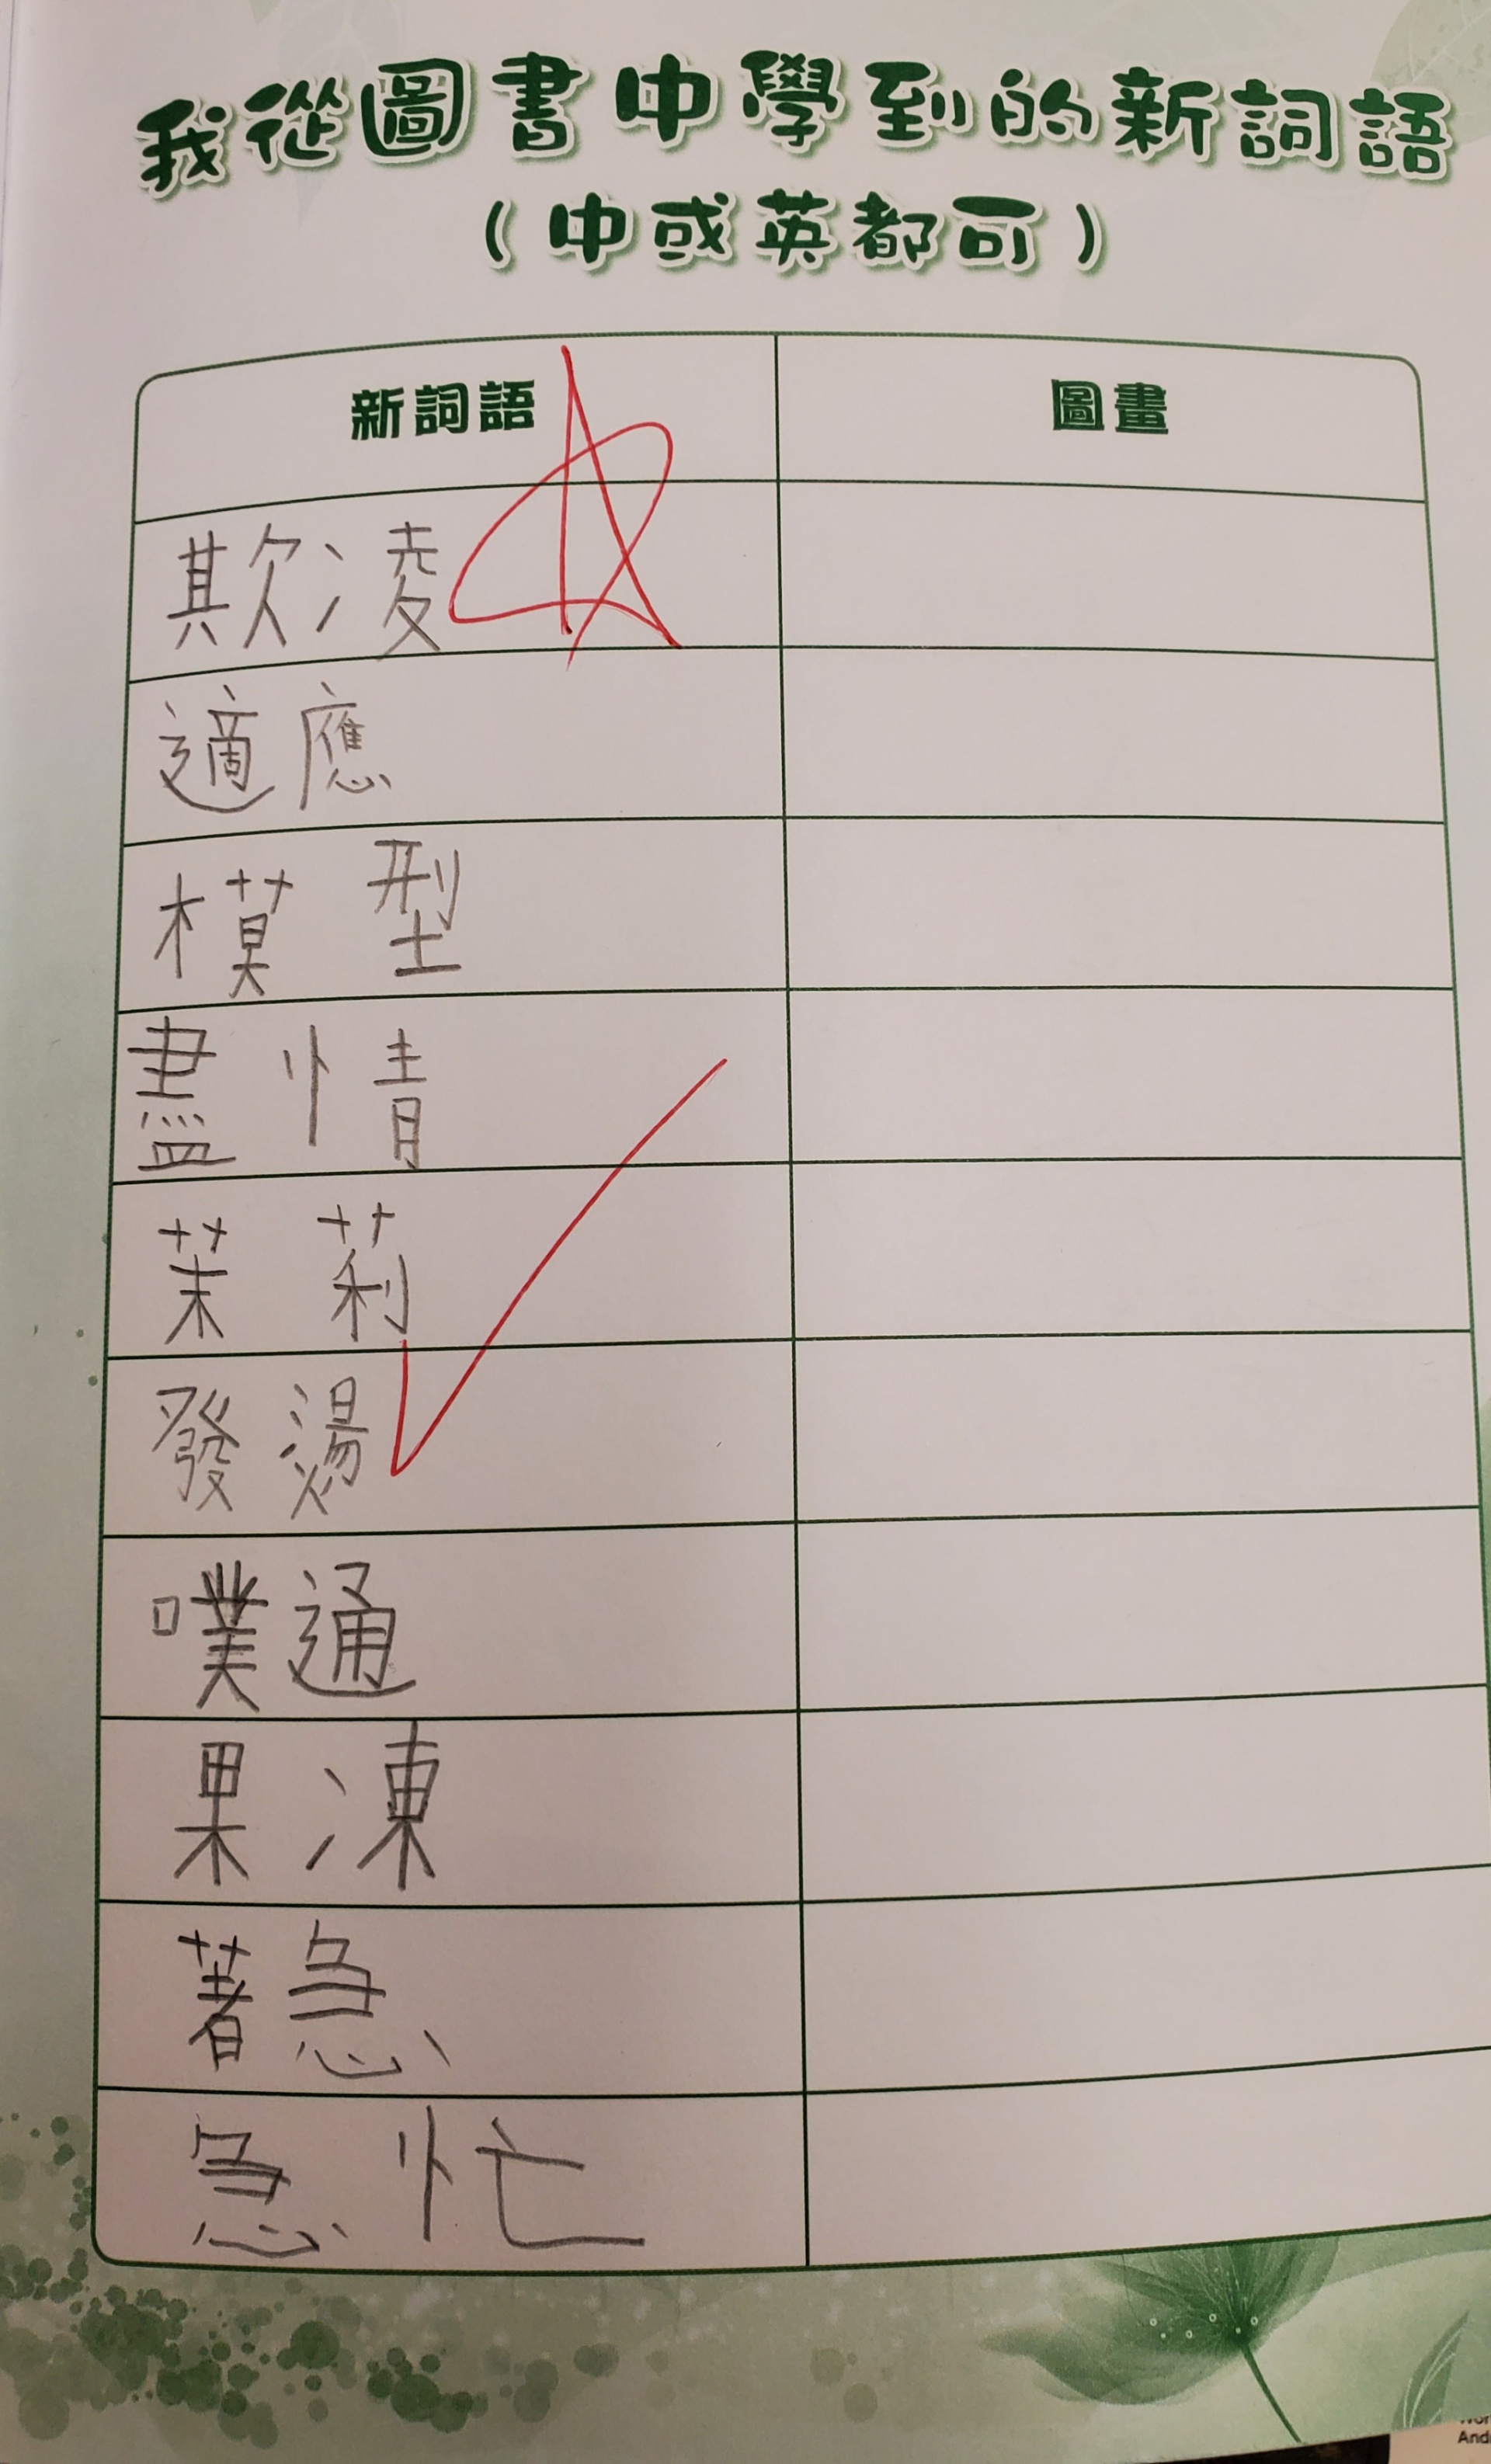 我從圖書中學到的新詞語
(中或英都可)
新詞語 圖畫
欺凌
適應
模型
盡情
茉莉
發燙
噗通
果凍
著急
急忙